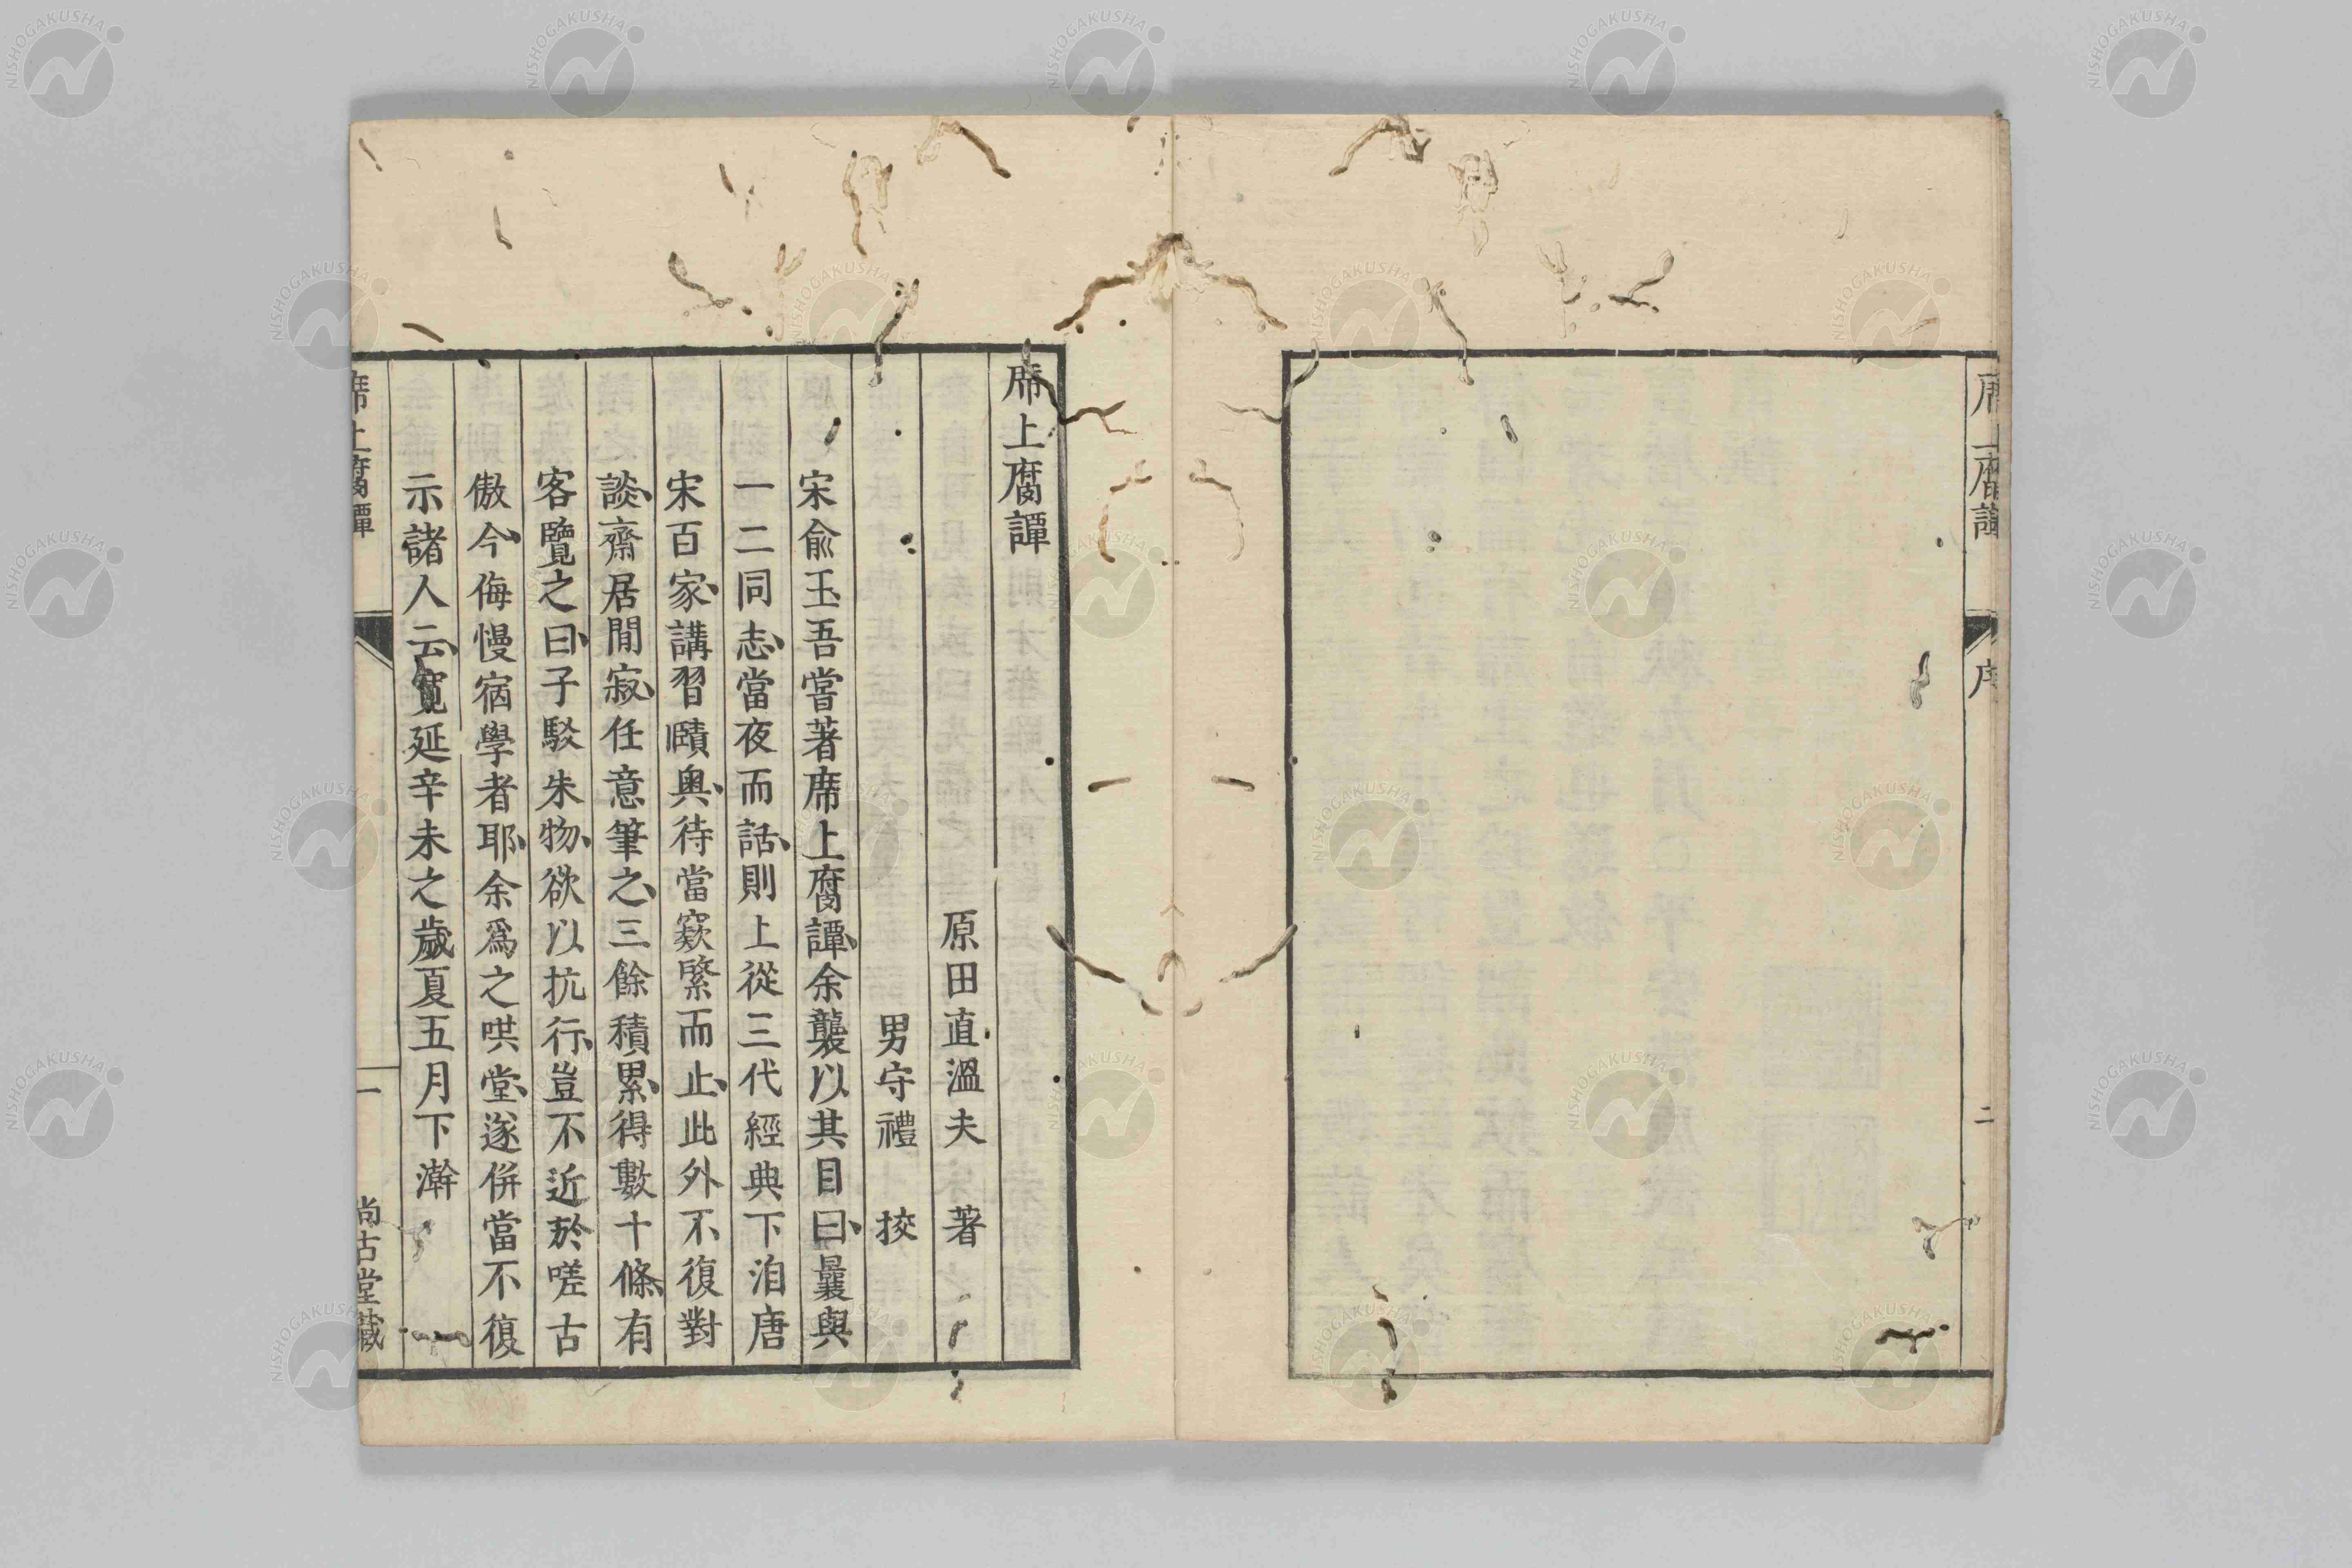 席上腐譚
序
二
席上腐譚
原田直溫夫 著
男守禮 挍
宋俞玉吾嘗著席上腐譚、余襲以其目曰、曩與
一二同志、當夜而話、則上從三代經典下洎唐
宋百家、講習賾奧、待當窾綮而止、此外不復對
談、齋居閒寂、任意筆之、三餘積累、得數十條、有
客覽之曰、子駁朱物、欲以抗行、豈不近於嗟古
傲今、侮慢宿學者耶、余爲之哄堂、遂併當不復
示諸人云、寬延辛未之歲夏五月下澣
席上腐譚
一
尚古堂藏
NISHOGAKUSHA